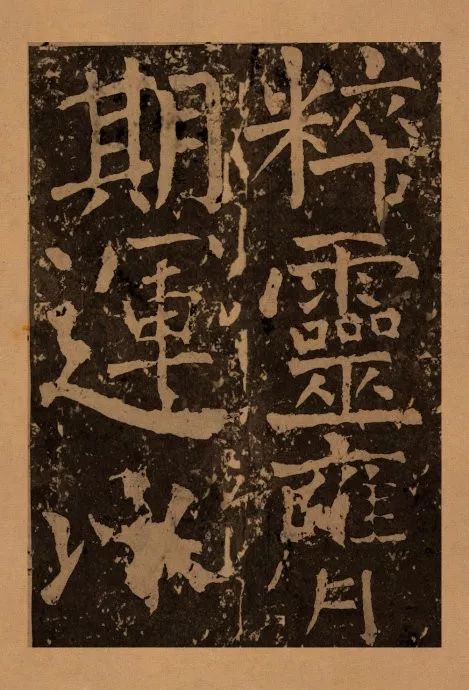 粹靈膺
期運